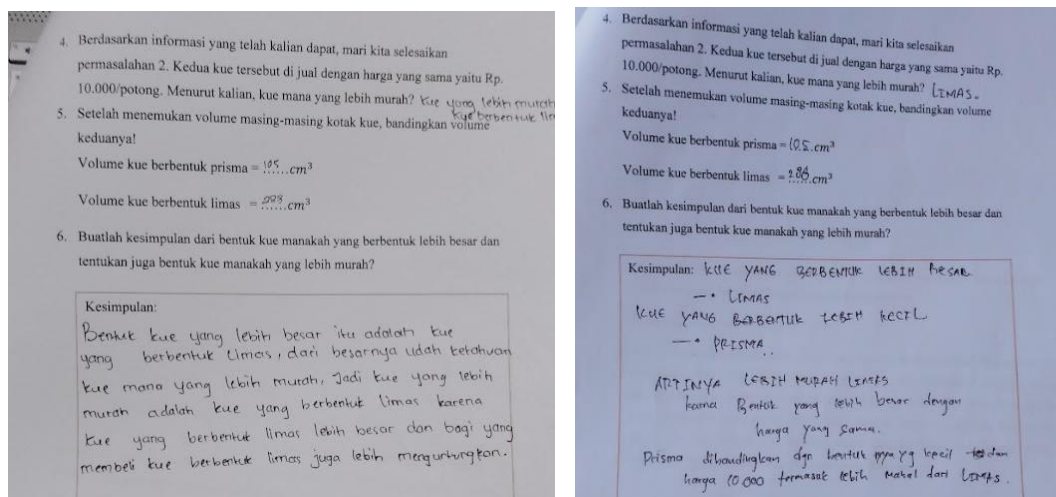 4. Berdasarkan informasi yang telah kalian dapat, mari kita selesaikan
permasalahan 2. Kedua kue tersebut di jual dengan harga yang sama yaitu Rp.
10.000/potong. Menurut kalian, kue mana yang lebih murah? Kue yang lebih murah
kue berbentuk
5. Setelah menemukan volume masing-masing kotak kue, bandingkan volume
keduanya!
Volume kue berbentuk prisma = 105 cm³
Volume kue berbentuk limas = cm³
6. Buatlah kesimpulan dari bentuk kue manakah yang berbentuk lebih besar dan
tentukan juga bentuk kue manakah yang lebih murah?
Kesimpulan:
Bentuk kue yang lebih besar itu adalah kue
yang berbentuk Limas, dari besarnya udah ketahuan
kue mana yang lebih murah, Jadi kue yang lebih
murah adalah kue yang berbentuk limas karena
kue yang berbentuk limas lebih besar dan bagi yang
membeli kue berbentuk limas juga lebih menguntungkan.
4. Berdasarkan informasi yang telah kalian dapat, mari kita selesaikan
permasalahan 2. Kedua kue tersebut di jual dengan harga yang sama yaitu Rp.
10.000/potong. Menurut kalian, kue mana yang lebih murah? LIMAS.
5. Setelah menemukan volume masing-masing kotak kue, bandingkan volume
keduanya!
Volume kue berbentuk prisma = 105 cm³
Volume kue berbentuk limas = cm³
6. Buatlah kesimpulan dari bentuk kue manakah yang berbentuk lebih besar dan
tentukan juga bentuk kue manakah yang lebih murah?
Kesimpulan: KUE YANG BERBENTUK LEBIH BESAR
→ LIMAS
KUE YANG BERBENTUK LEBIH KECIL
→ PRISMA..
ARTINYA LEBIH MURAH LIMAS
karna Bentuk yang lebih besar dengan
harga yang sama.
Prisma dibandingkan dgn bentuk nya yg kecil dan
harga 10 000 termasuk lebih mahal dari LIMAS.